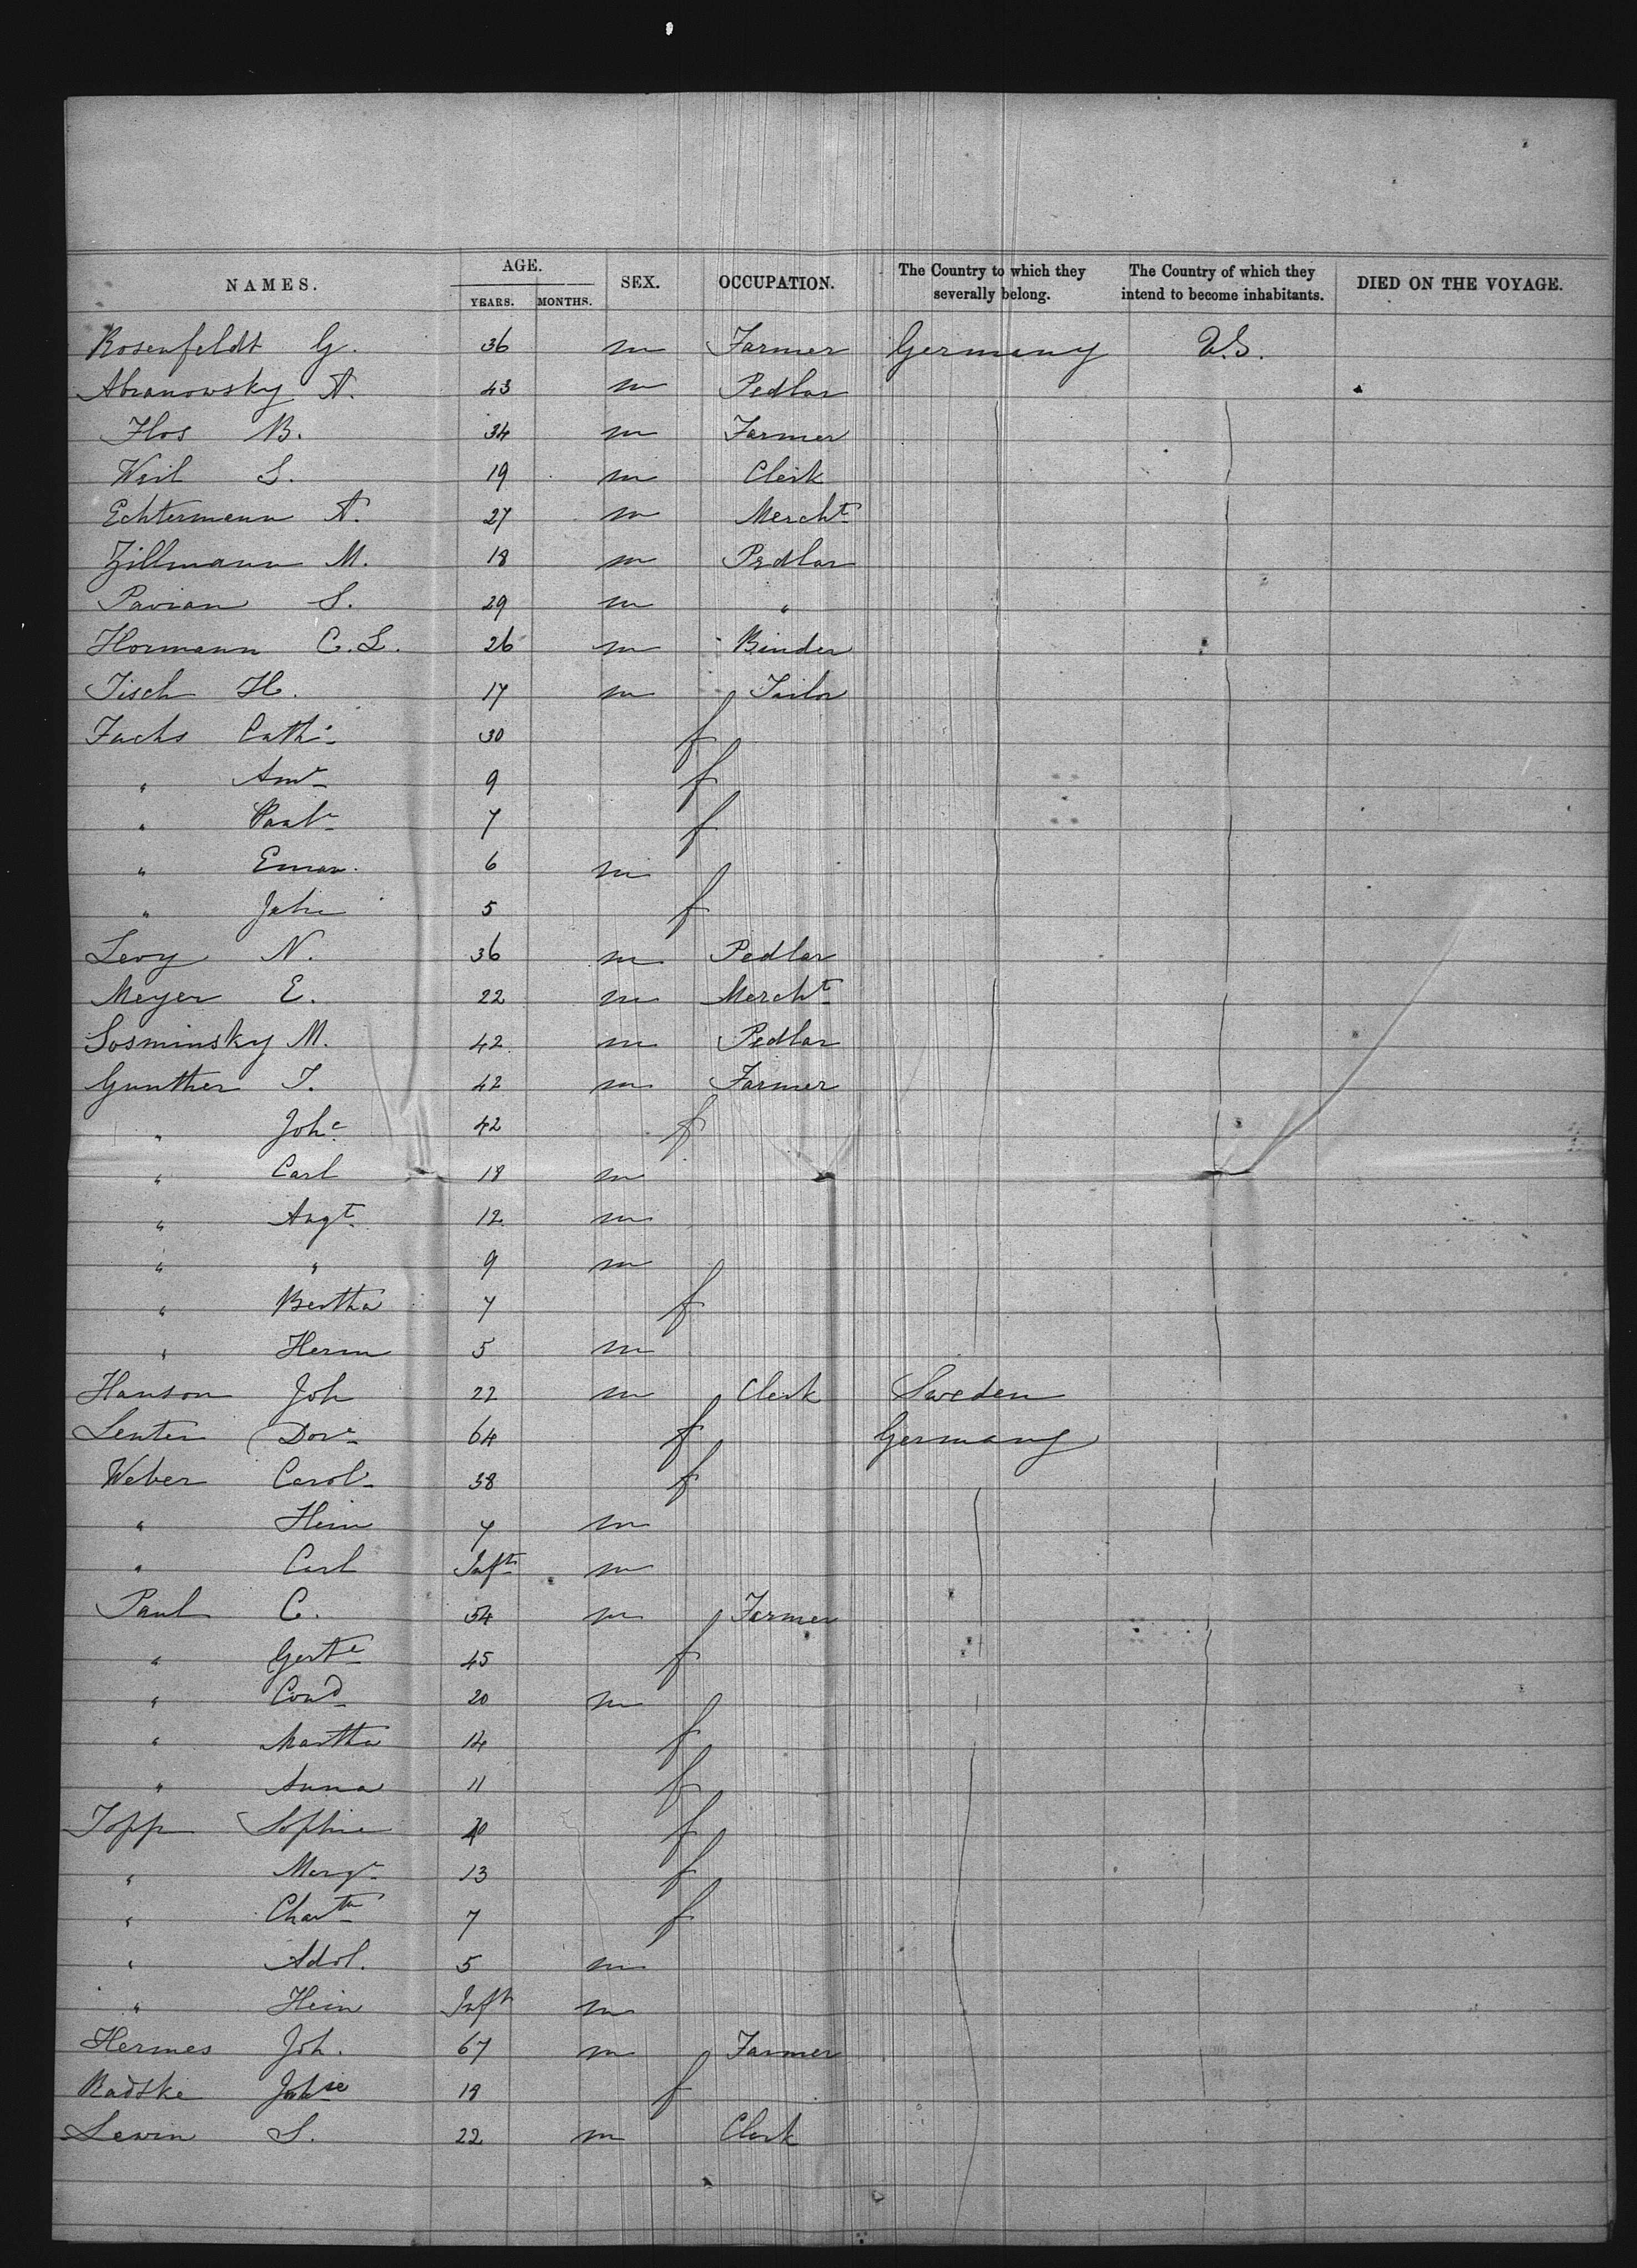 NAMES. AGE. SEX. OCCUPATION. The Country to which they severally belong. The Country of which they intend to become inhabitants. DIED ON THE VOYAGE.
YEARS. MONTHS.
Rosenfeldt G. 36 m Farmer Germany U.S.
Abranowsky A. 43 m Pedlar
Flos B. 34 m Farmer
Weil S. 19 m Clerk
Echtermann A. 27 m Mercht
Zillmann M. 18 m Pedlar
Pavian S. 29 m "
Hormann C. L. 26 m Binder
Tisch H. 17 m Tailor
Fuchs Cath 30 f
" 9 f
" 7 f
" Eman. 6 m
" 5 f
Levy N. 36 m Pedlar
Meyer E. 22 m Mercht
Sosminsky M. 42 m Pedlar
Gunther T. 42 m Farmer
" Johe 42 f
" Carl 18 m
" Augt 12 m
" " 9 m
" Bertha 7 f
" Herm 5 m
Hanson Joh 22 m Clerk Sweden
Lenter Dore 64 f Germany
Weber Carole 38 f
" Hein 7 m
" Carl Inft m
Paul C. 54 m Farmer
" Gerte 45 f
" Cond 20 m
" Martha 14 f
" Anna 11 f
Topp Sophie 40 f
" Marge 13 f
" Chartte 7 f
" Adol. 5 m
" Hein Inft m
Hermes Joh. 67 m Farmer
Radtke 18 f
Lewin S. 22 m Clerk